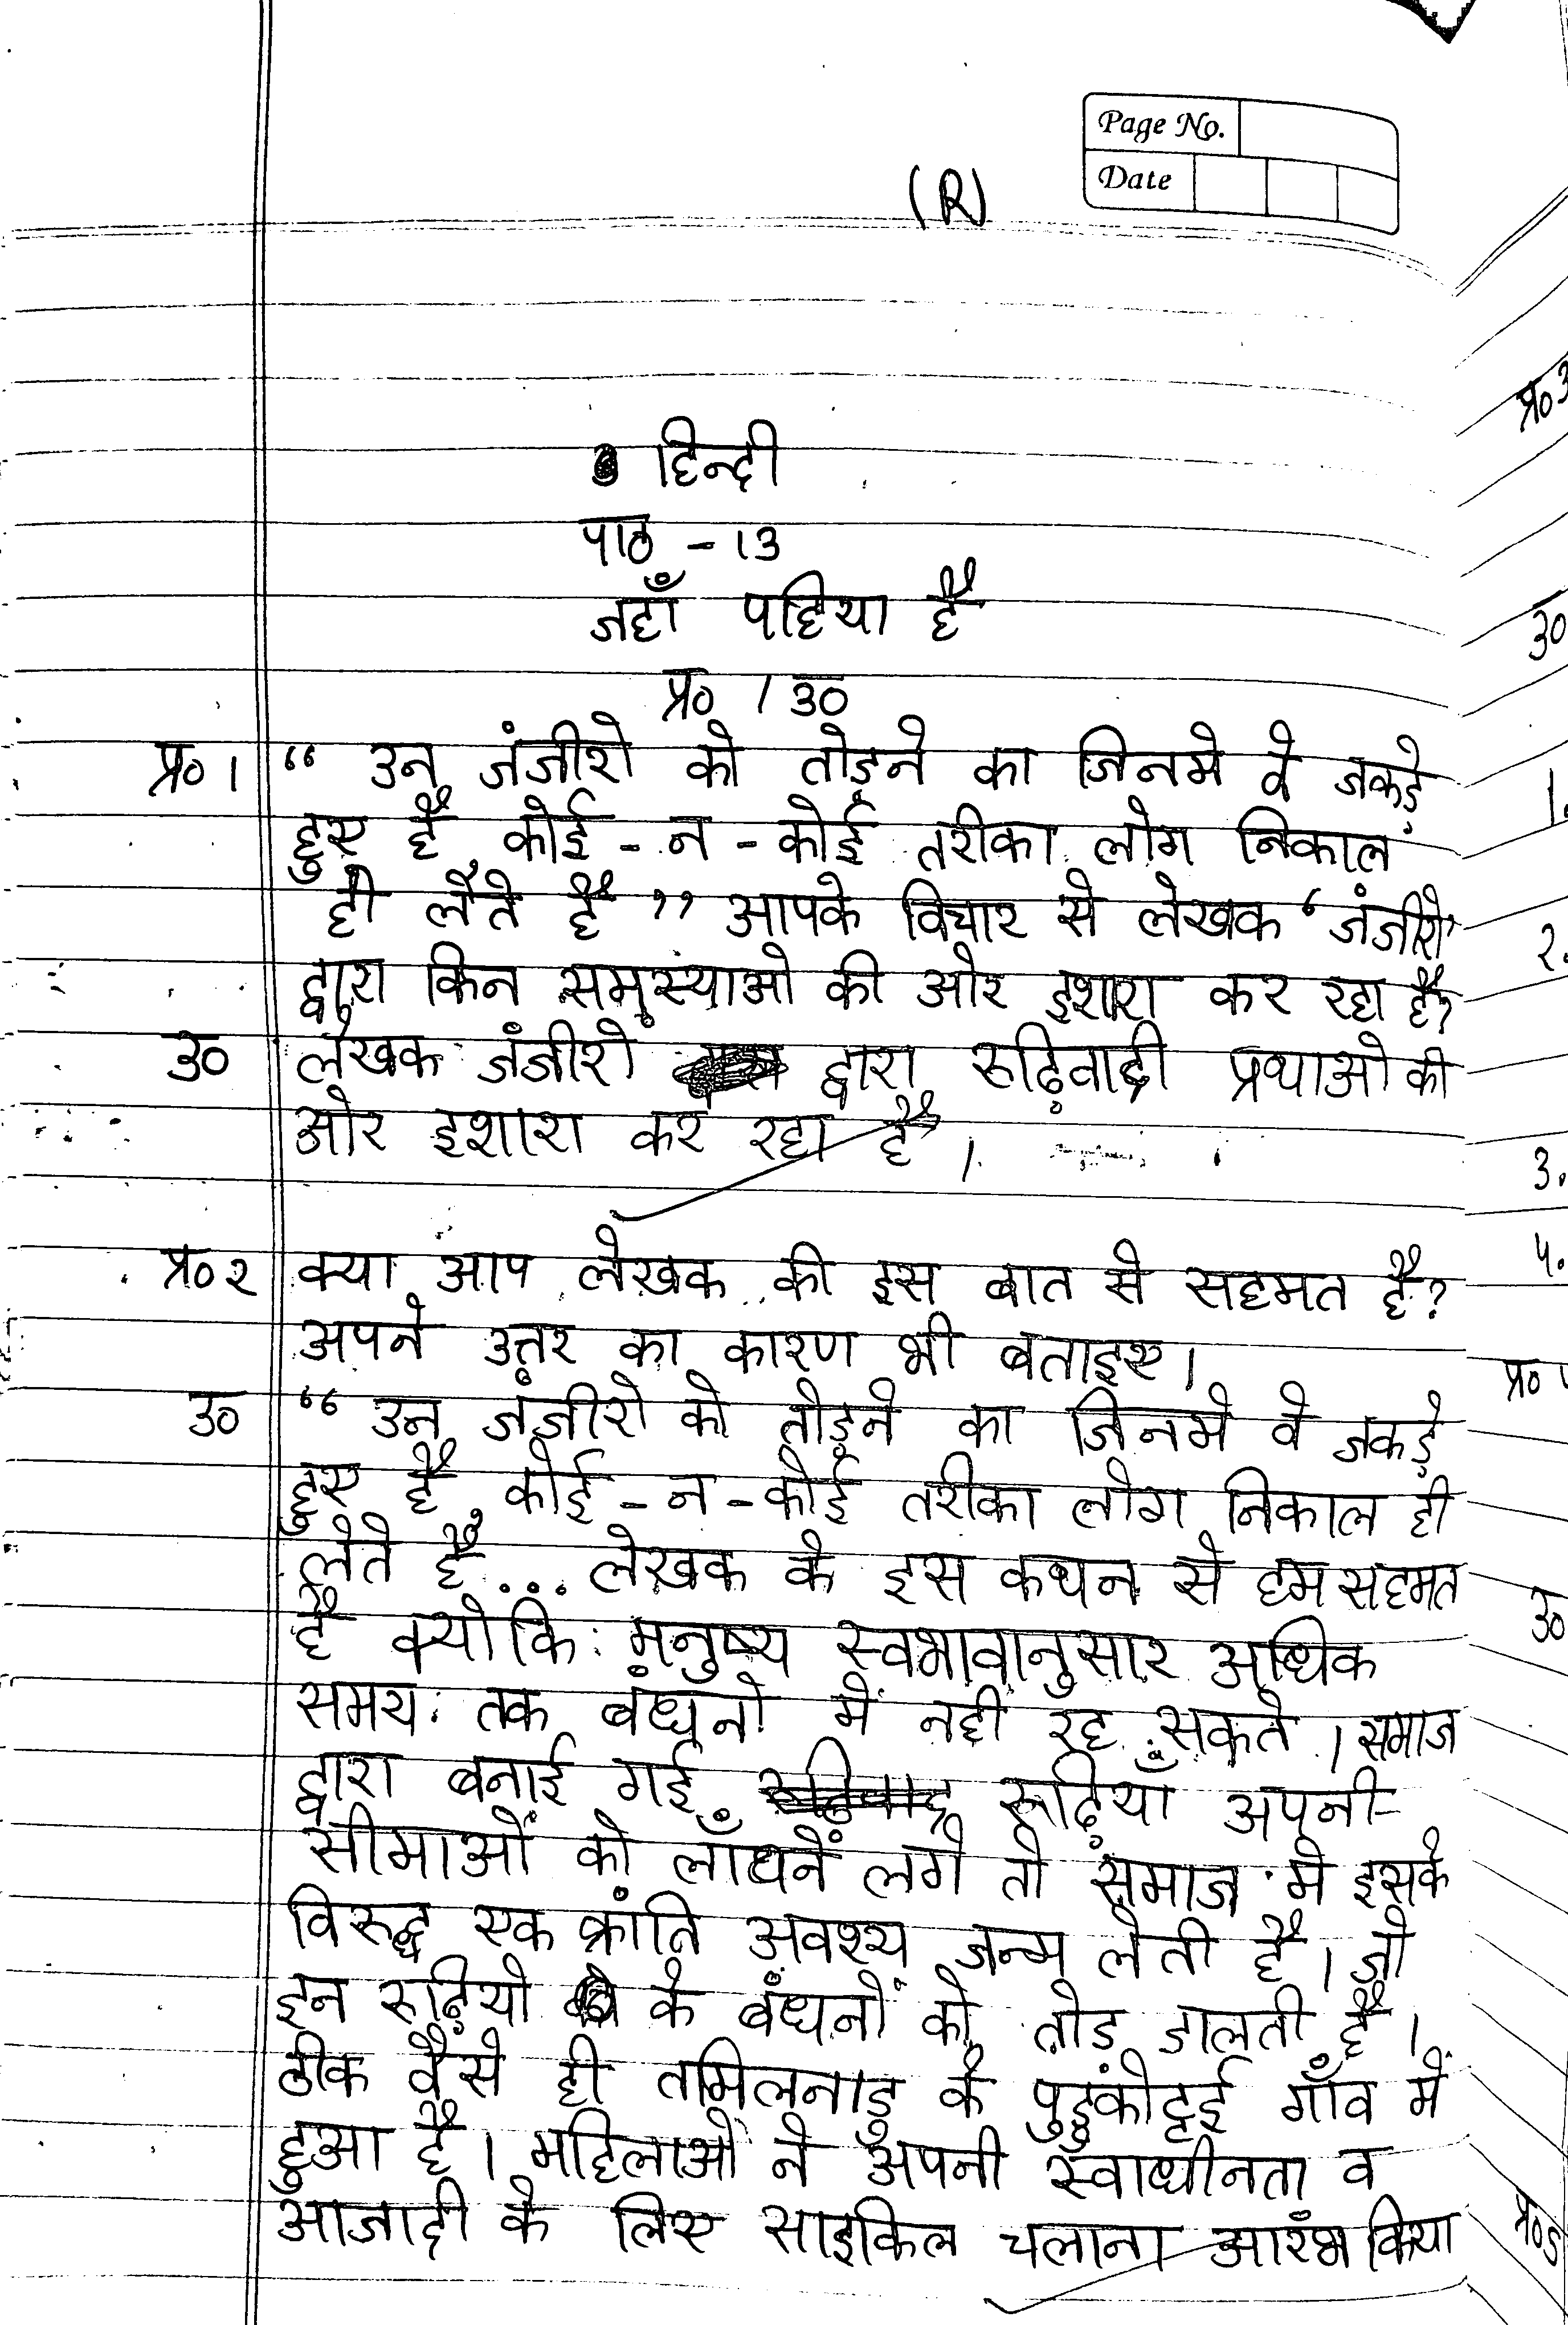 Page No.
Date
(R)
हिन्दी
पाठ - 13
जहाँ पहिया है
प्र० / उ०
प्र० 1 “ उन जंजीरो को तोड़ने का जिनमे वे जकड़े
हुए है कोई - न - कोई तरीका लोग निकाल
ही लेते है ” आपके विचार से लेखक ‘जंजीरो’
द्वारा किन समस्याओ की ओर इशारा कर रहा है?
उ० लेखक जंजीरो द्वारा रूढ़िवादी प्रथाओ की
ओर इशारा कर रहा है।
प्र० २ क्या आप लेखक की इस बात से सहमत है?
अपने उत्तर का कारण भी बताइए।
उ० “ उन जंजीरो को तोड़ने का जिनमे वे जकड़े
हुए है कोई - न - कोई तरीका लोग निकाल ही
लेते है... लेखक के इस कथन से हम सहमत
है क्योकि मनुष्य स्वभावानुसार अधिक
समय तक बंधनो में नही रह सकते । समाज
द्वारा बनाई गई रूढ़ियाँ अपनी
सीमाओं को लाँघनें लगे तो समाज मे इसके
विरुद्ध एक क्रांति अवश्य जन्म लेती है। जो
इन रूढ़ियो के बंधनों को तोड डालती है।
ठीक वैसे ही तमिलनाडु के पुडुकोट्टई गाँव में
हुआ है। महिलाओ ने अपनी स्वाधीनता व
आजादी के लिए साइकिल चलाना आरंभ किया
प्र० 3
उ०
1.
2.
3.
4.
प्र०
उ०
प्र० 5